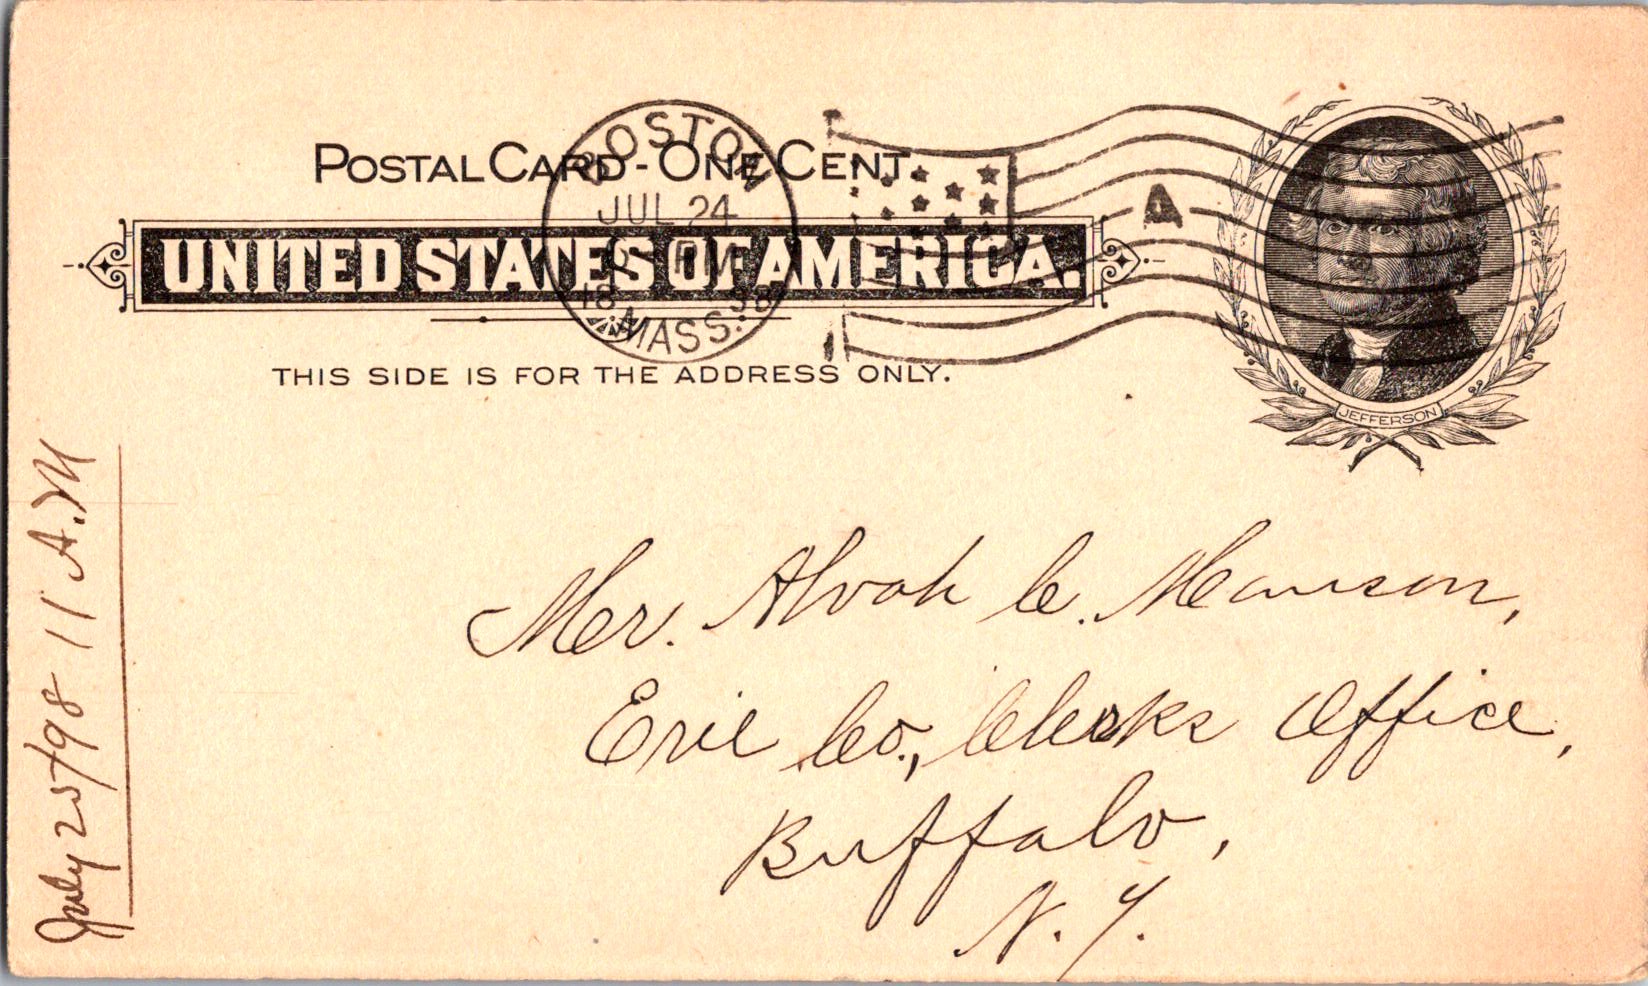 POSTAL CARD - ONE CENT.
UNITED STATES OF AMERICA.
THIS SIDE IS FOR THE ADDRESS ONLY.
BOSTON
JUL 24
PM
18 98
MASS.
A
JEFFERSON
Mr. Alvah C. Manson,
Erie Co., Clerks Office,
Buffalo,
N. Y.
July 25/98 11 A.M